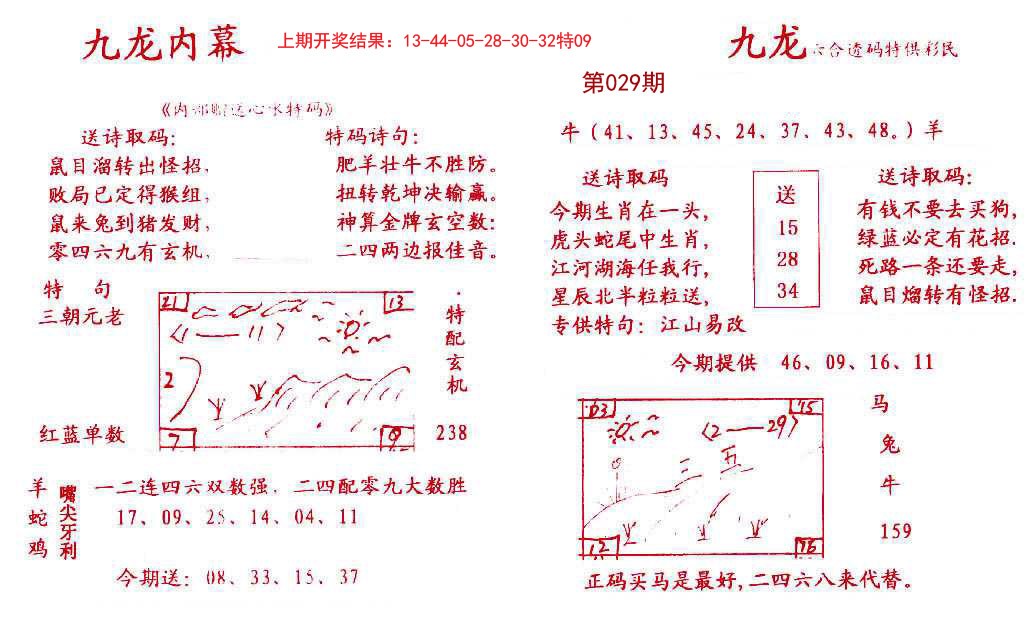 九龙内幕
上期开奖结果：13-44-05-28-30-32特09
《内部赠送心水特码》
送诗取码：
鼠目溜转出怪招，
败局已定得猴组，
鼠来兔到猪发财，
零四六九有玄机，
特码诗句：
肥羊壮牛不胜防。
扭转乾坤决输赢。
神算金牌玄空数：
二四两边报佳音。
特 句
三朝元老
红蓝单数
21
13
〈1——11〉
2
7
9
特配玄机
238
羊
蛇
鸡
嘴尖牙利
一二连四六双数强，二四配零九大数胜
17、09、25、14、04、11
今期送：08、33、15、37
九龙六合透码特供彩民
第029期
牛（41、13、45、24、37、43、48。）羊
送诗取码
今期生肖在一头，
虎头蛇尾中生肖，
江河湖海任我行，
星辰北半粒粒送，
专供特句：江山易改
送
15
28
34
送诗取码：
有钱不要去买狗，
绿蓝必定有花招.
死路一条还要走，
鼠目熘转有怪招.
今期提供 46、09、16、11
03
15
〈2——29〉
三五
12
76
马
兔
牛
159
正码买马是最好，二四六八来代替。